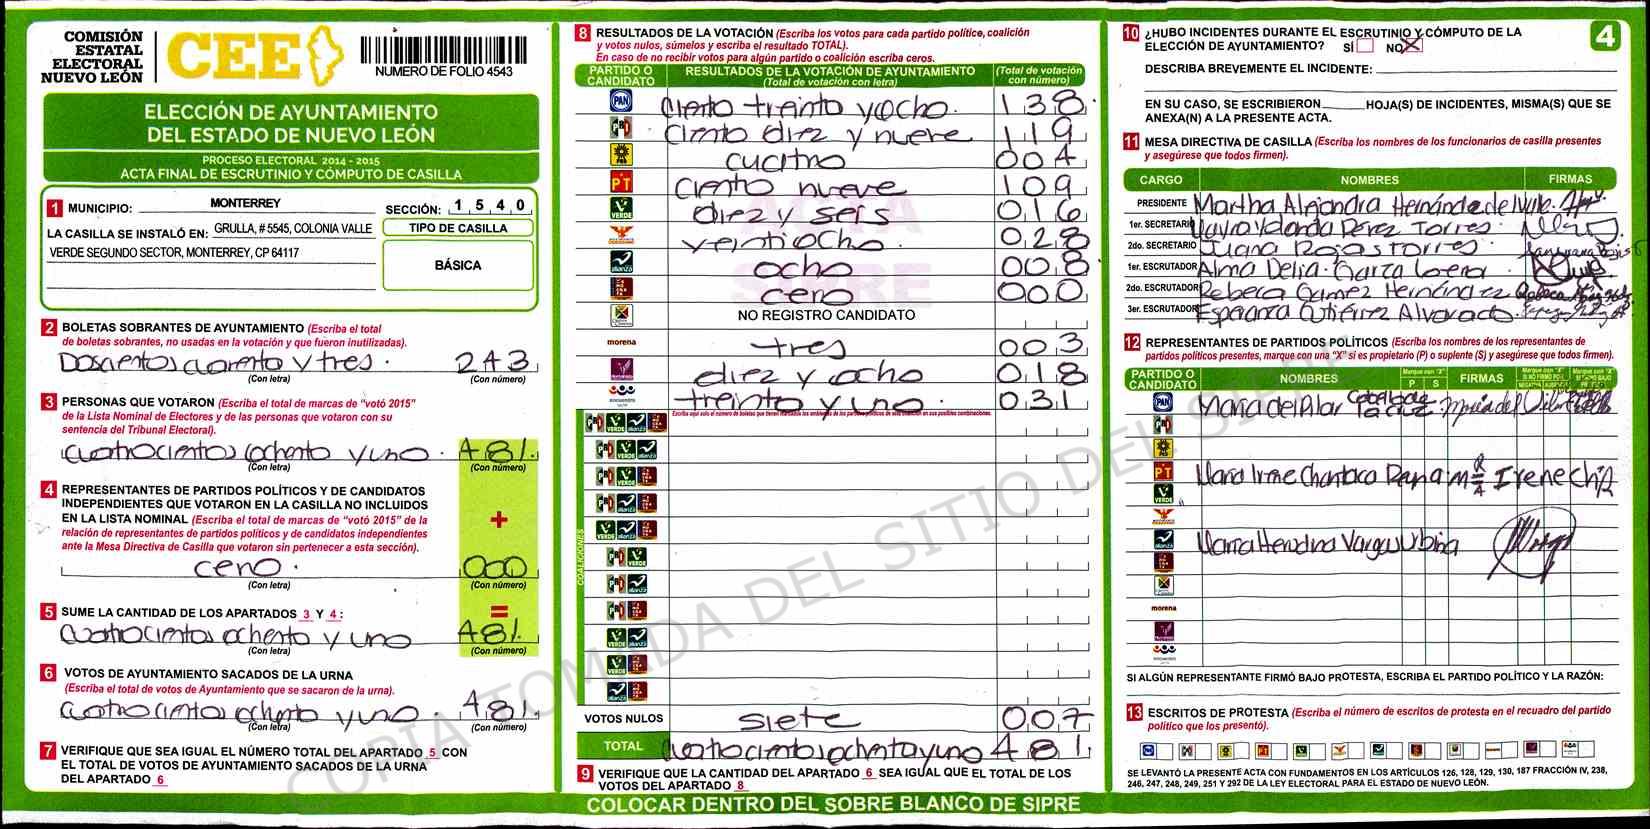 COMISIÓN
ESTATAL
ELECTORAL
NUEVO LEÓN
CEE
NUMERO DE FOLIO 4543
ELECCIÓN DE AYUNTAMIENTO
DEL ESTADO DE NUEVO LEÓN
PROCESO ELECTORAL 2014 - 2015
ACTA FINAL DE ESCRUTINIO Y CÓMPUTO DE CASILLA
1 MUNICIPIO: MONTERREY SECCIÓN: 1 5 4 0
LA CASILLA SE INSTALÓ EN: GRULLA, # 5545, COLONIA VALLE
VERDE SEGUNDO SECTOR, MONTERREY, CP 64117
TIPO DE CASILLA
BÁSICA
2 BOLETAS SOBRANTES DE AYUNTAMIENTO (Escriba el total
de boletas sobrantes, no usadas en la votación y que fueron inutilizadas).
Doscientos cuarenta y tres. 243
(Con letra) (Con número)
3 PERSONAS QUE VOTARON (Escriba el total de marcas de “votó 2015”
de la Lista Nominal de Electores y de las personas que votaron con su
sentencia del Tribunal Electoral).
cuatrocientos ochenta y uno. 481.
(Con letra) (Con número)
4 REPRESENTANTES DE PARTIDOS POLÍTICOS Y DE CANDIDATOS
INDEPENDIENTES QUE VOTARON EN LA CASILLA NO INCLUIDOS
EN LA LISTA NOMINAL (Escriba el total de marcas de “votó 2015” de la
relación de representantes de partidos políticos y de candidatos independientes
ante la Mesa Directiva de Casilla que votaron sin pertenecer a esta sección).
+
cero. 000
(Con letra) (Con número)
5 SUME LA CANTIDAD DE LOS APARTADOS 3 Y 4 :
=
cuatrocientos ochenta y uno 481.
(Con letra) (Con número)
6 VOTOS DE AYUNTAMIENTO SACADOS DE LA URNA
(Escriba el total de votos de Ayuntamiento que se sacaron de la urna).
cuatrocientos ochenta y uno. 481.
(Con letra) (Con número)
7 VERIFIQUE QUE SEA IGUAL EL NÚMERO TOTAL DEL APARTADO 5 CON
EL TOTAL DE VOTOS DE AYUNTAMIENTO SACADOS DE LA URNA
DEL APARTADO 6
8 RESULTADOS DE LA VOTACIÓN (Escriba los votos para cada partido político, coalición
y votos nulos, súmelos y escriba el resultado TOTAL).
En caso de no recibir votos para algún partido o coalición escriba ceros.
PARTIDO O CANDIDATO RESULTADOS DE LA VOTACIÓN DE AYUNTAMIENTO (Total de votación con letra) (Total de votación con número)
PAN ciento treinta y ocho. 138.
PRI ciento diez y nueve 119
PRD cuatro 004
PT ciento nueve 109
VERDE diez y seis 016
veintiocho 028
alianza ocho 008
cero 000
NO REGISTRO CANDIDATO
morena tres 003
diez y ocho 018
encuentro treinta y uno 031
Escriba aquí solo el número de boletas que tienen marcados los emblemas de los partidos políticos de esta coalición en sus posibles combinaciones.
COALICIONES
ACTA
SIPRE
VOTOS NULOS siete 007
TOTAL cuatrocientos ochenta y uno 481
9 VERIFIQUE QUE LA CANTIDAD DEL APARTADO 6 SEA IGUAL QUE EL TOTAL DE LOS
VOTOS DEL APARTADO 8
COLOCAR DENTRO DEL SOBRE BLANCO DE SIPRE
10 ¿HUBO INCIDENTES DURANTE EL ESCRUTINIO Y CÓMPUTO DE LA
ELECCIÓN DE AYUNTAMIENTO? SÍ NO X
4
DESCRIBA BREVEMENTE EL INCIDENTE:
EN SU CASO, SE ESCRIBIERON HOJA(S) DE INCIDENTES, MISMA(S) QUE SE
ANEXA(N) A LA PRESENTE ACTA.
11 MESA DIRECTIVA DE CASILLA (Escriba los nombres de los funcionarios de casilla presentes
y asegúrese que todos firmen).
CARGO NOMBRES FIRMAS
PRESIDENTE Martha Alejandra Hernández de
1er. SECRETARIO Mayra Yolanda Pérez Torres
2do. SECRETARIO Juana Rojas Torres
1er. ESCRUTADOR Alma Delia Garza
2do. ESCRUTADOR Rebeca Gamez Hernández
3er. ESCRUTADOR Esperanza Gutiérrez Alvarado
12 REPRESENTANTES DE PARTIDOS POLÍTICOS (Escriba los nombres de los representantes de
partidos políticos presentes, marque con una “X” si es propietario (P) o suplente (S) y asegúrese que todos firmen).
PARTIDO O CANDIDATO NOMBRES Marque con “X” P S FIRMAS
PAN Maria del Pilar
PRI
PRD
PT Maria Irene
VERDE
alianza Maria Vargas Urbina
morena
encuentro
SI ALGÚN REPRESENTANTE FIRMÓ BAJO PROTESTA, ESCRIBA EL PARTIDO POLÍTICO Y LA RAZÓN:
13 ESCRITOS DE PROTESTA (Escriba el número de escritos de protesta en el recuadro del partido
político que los presentó).
SE LEVANTÓ LA PRESENTE ACTA CON FUNDAMENTOS EN LOS ARTÍCULOS 126, 128, 129, 130, 187 FRACCIÓN IV, 238,
246, 247, 248, 249, 251 Y 292 DE LA LEY ELECTORAL PARA EL ESTADO DE NUEVO LEÓN.
COPIA TOMADA DEL SITIO DEL SIPRE